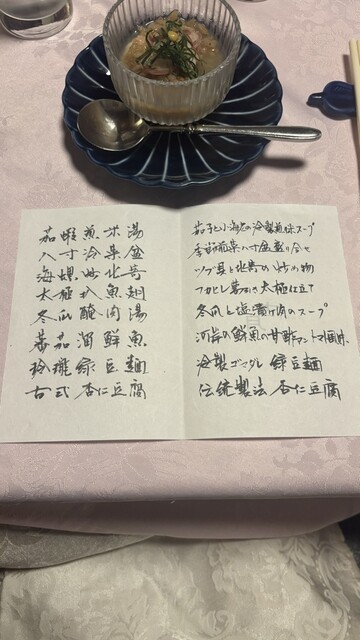 茄蝦煎氷湯
八寸冷菜盆
海螺炒北苔
太極扒魚翅
冬瓜醃肉湯
蕃茄溜鮮魚
玲瓏緑豆麺
古式杏仁豆腐
茄子と小海老の冷製煎味スープ
季節前菜八寸盆盛り合せ
ツブ貝と北苔の炒め物
フカヒレ葛引き太極仕立て
冬瓜と塩漬け肉のスープ
河岸の鮮魚の甘酢アントマト風味
冷製ゴマダレ緑豆麺
伝統製法杏仁豆腐